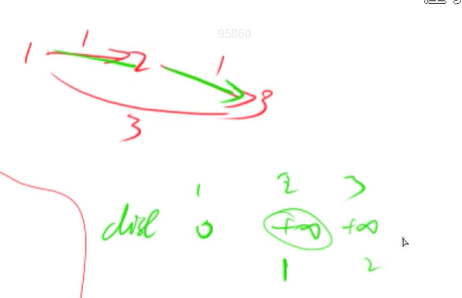 95860
1 1 2 1 3
3
1 2 3
dist 0 +∞ +∞
1 2